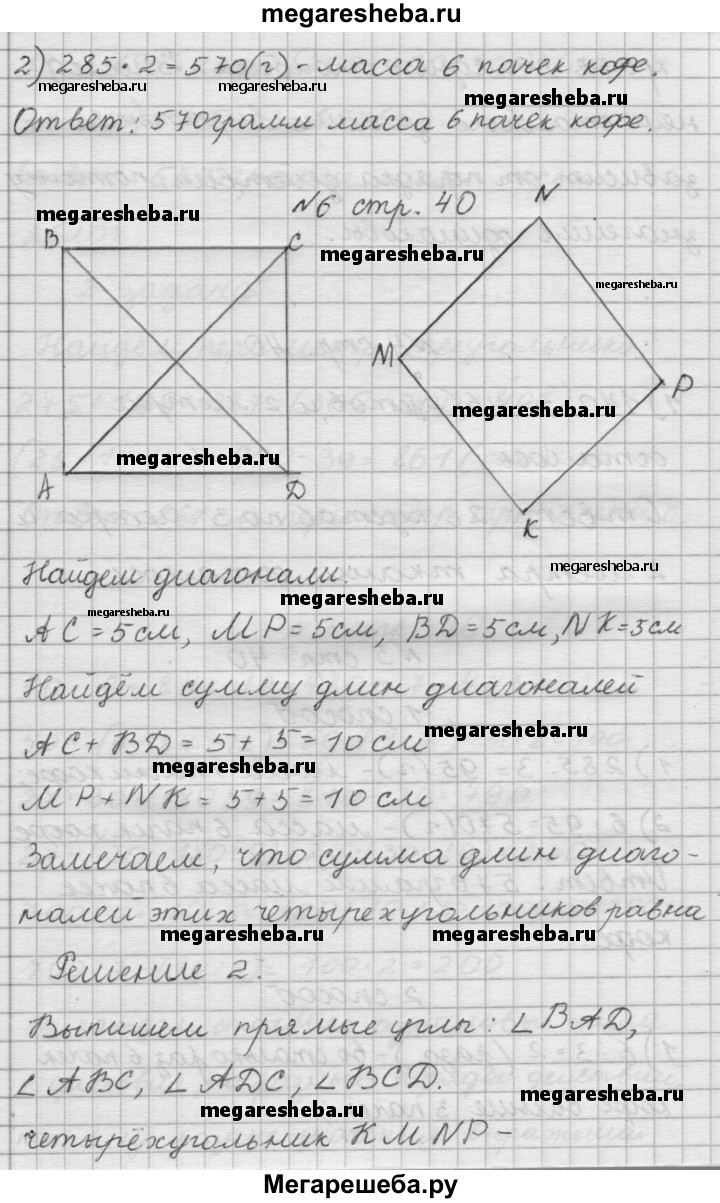 megaresheba.ru
2) 285 · 2 = 570 (г) - масса 6 пачек кофе.
megaresheba.ru megaresheba.ru megaresheba.ru
Ответ: 570 грамм масса 6 пачек кофе.
№6 стр. 40
megaresheba.ru
N
B C
megaresheba.ru
megaresheba.ru
M
P
megaresheba.ru
megaresheba.ru
A D
K
Найдем диагонали.
megaresheba.ru
megaresheba.ru
megaresheba.ru
AC = 5 см, MP = 5 см, BD = 5 см, NK = 5 см
Найдём сумму длин диагоналей
megaresheba.ru
AC + BD = 5 + 5 = 10 см
megaresheba.ru
MP + NK = 5 + 5 = 10 см
Замечаем, что сумма длин диаго-
megaresheba.ru
налей этих четырехугольников равна
megaresheba.ru megaresheba.ru
Решение 2.
Выпишем прямые углы: ∠BAD,
∠ABC, ∠ADC, ∠BCD.
megaresheba.ru
megaresheba.ru
четырёхугольник KMNP -
Мегарешеба.ру